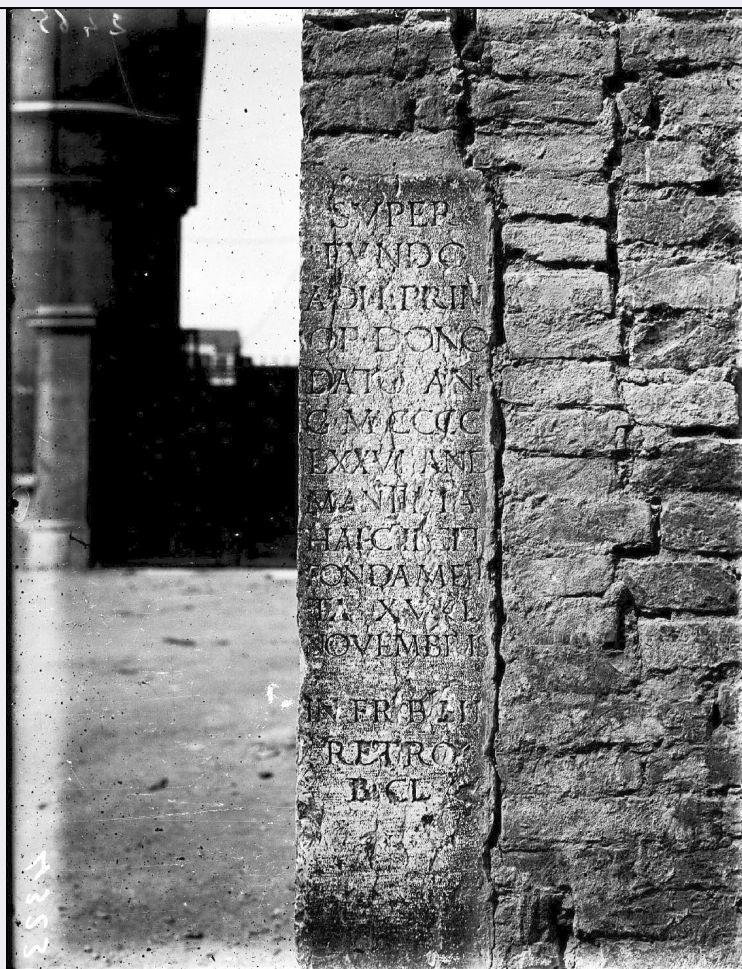 SVPER
FVNDO
A DO L PRIN
OP DONO
DATO AN
C M CCCC
LXXVI AND
MANTINIA
HAEC FECIT
FONDAMEN
TA XV KL
NOVEMBRIS
IN FR B LII
RETRO
B CL